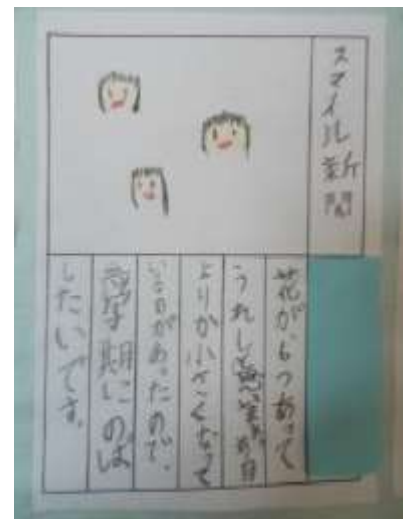 スマイル新聞
花が、6つあって
うれし
よりか小さくなって
いる日があったので、
学期にのば
したいです。